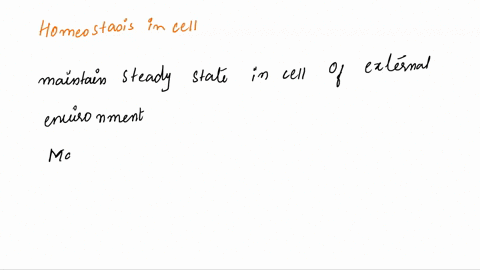 Homeostaois in cell
maintain steady state in cell of external
enviroonment
Mo